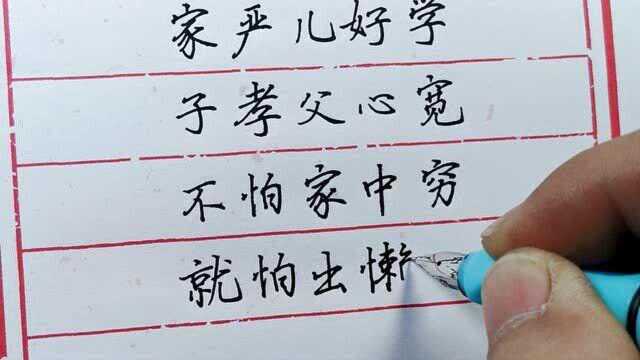 家严儿好学
子孝父心宽
不怕家中穷
就怕出懒